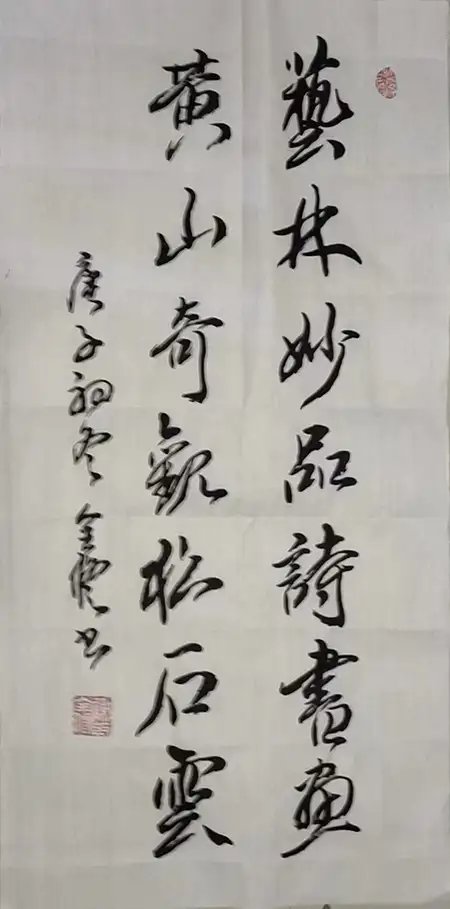 藝林妙品詩書畫
黃山奇觀松石雲
庚子初冬 書